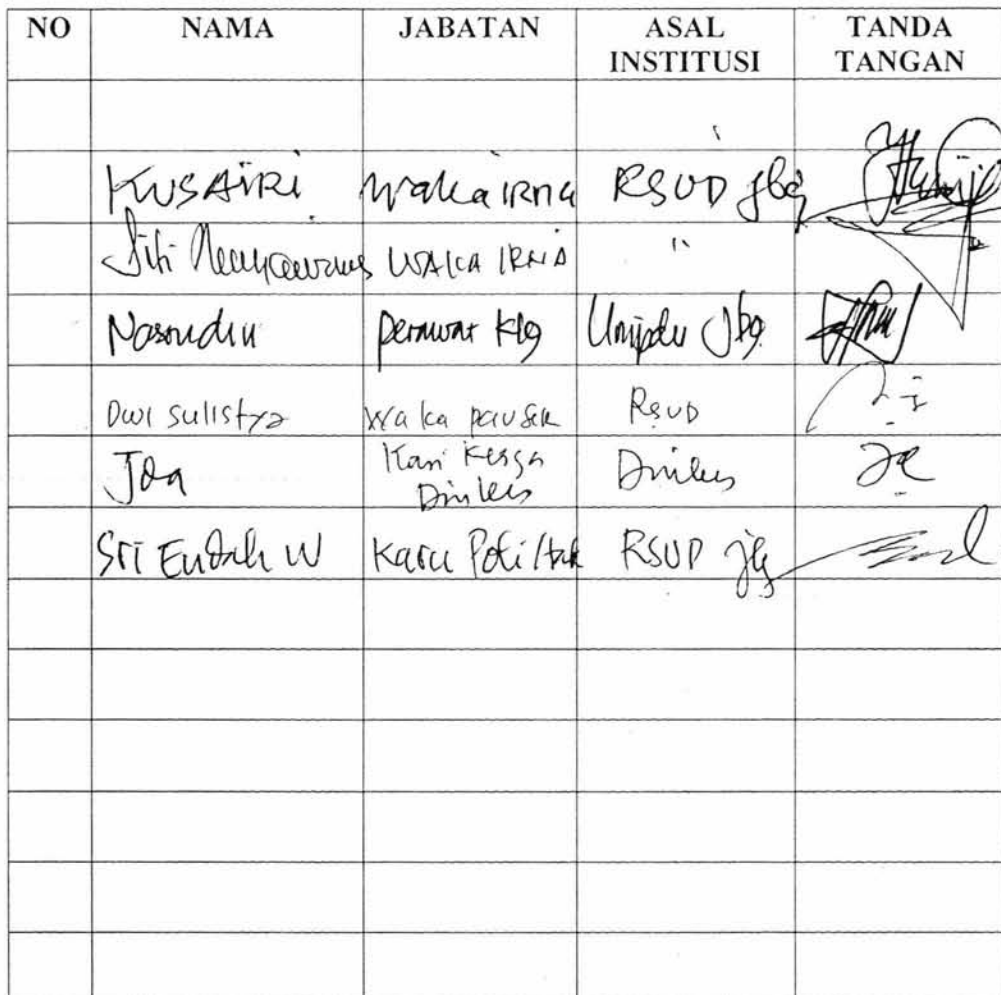 NO NAMA JABATAN ASAL INSTITUSI TANDA TANGAN
KUSAIRI Waka IRNA RSUD jbg
Siti WAKA IRNA "
Nasrudin perawat Klg Unipdu Jbg
Dwi sulistya Waka RSUD
Kasi Dinkes Dinkes
Sri Endah W Karu Poli RSUD jbg